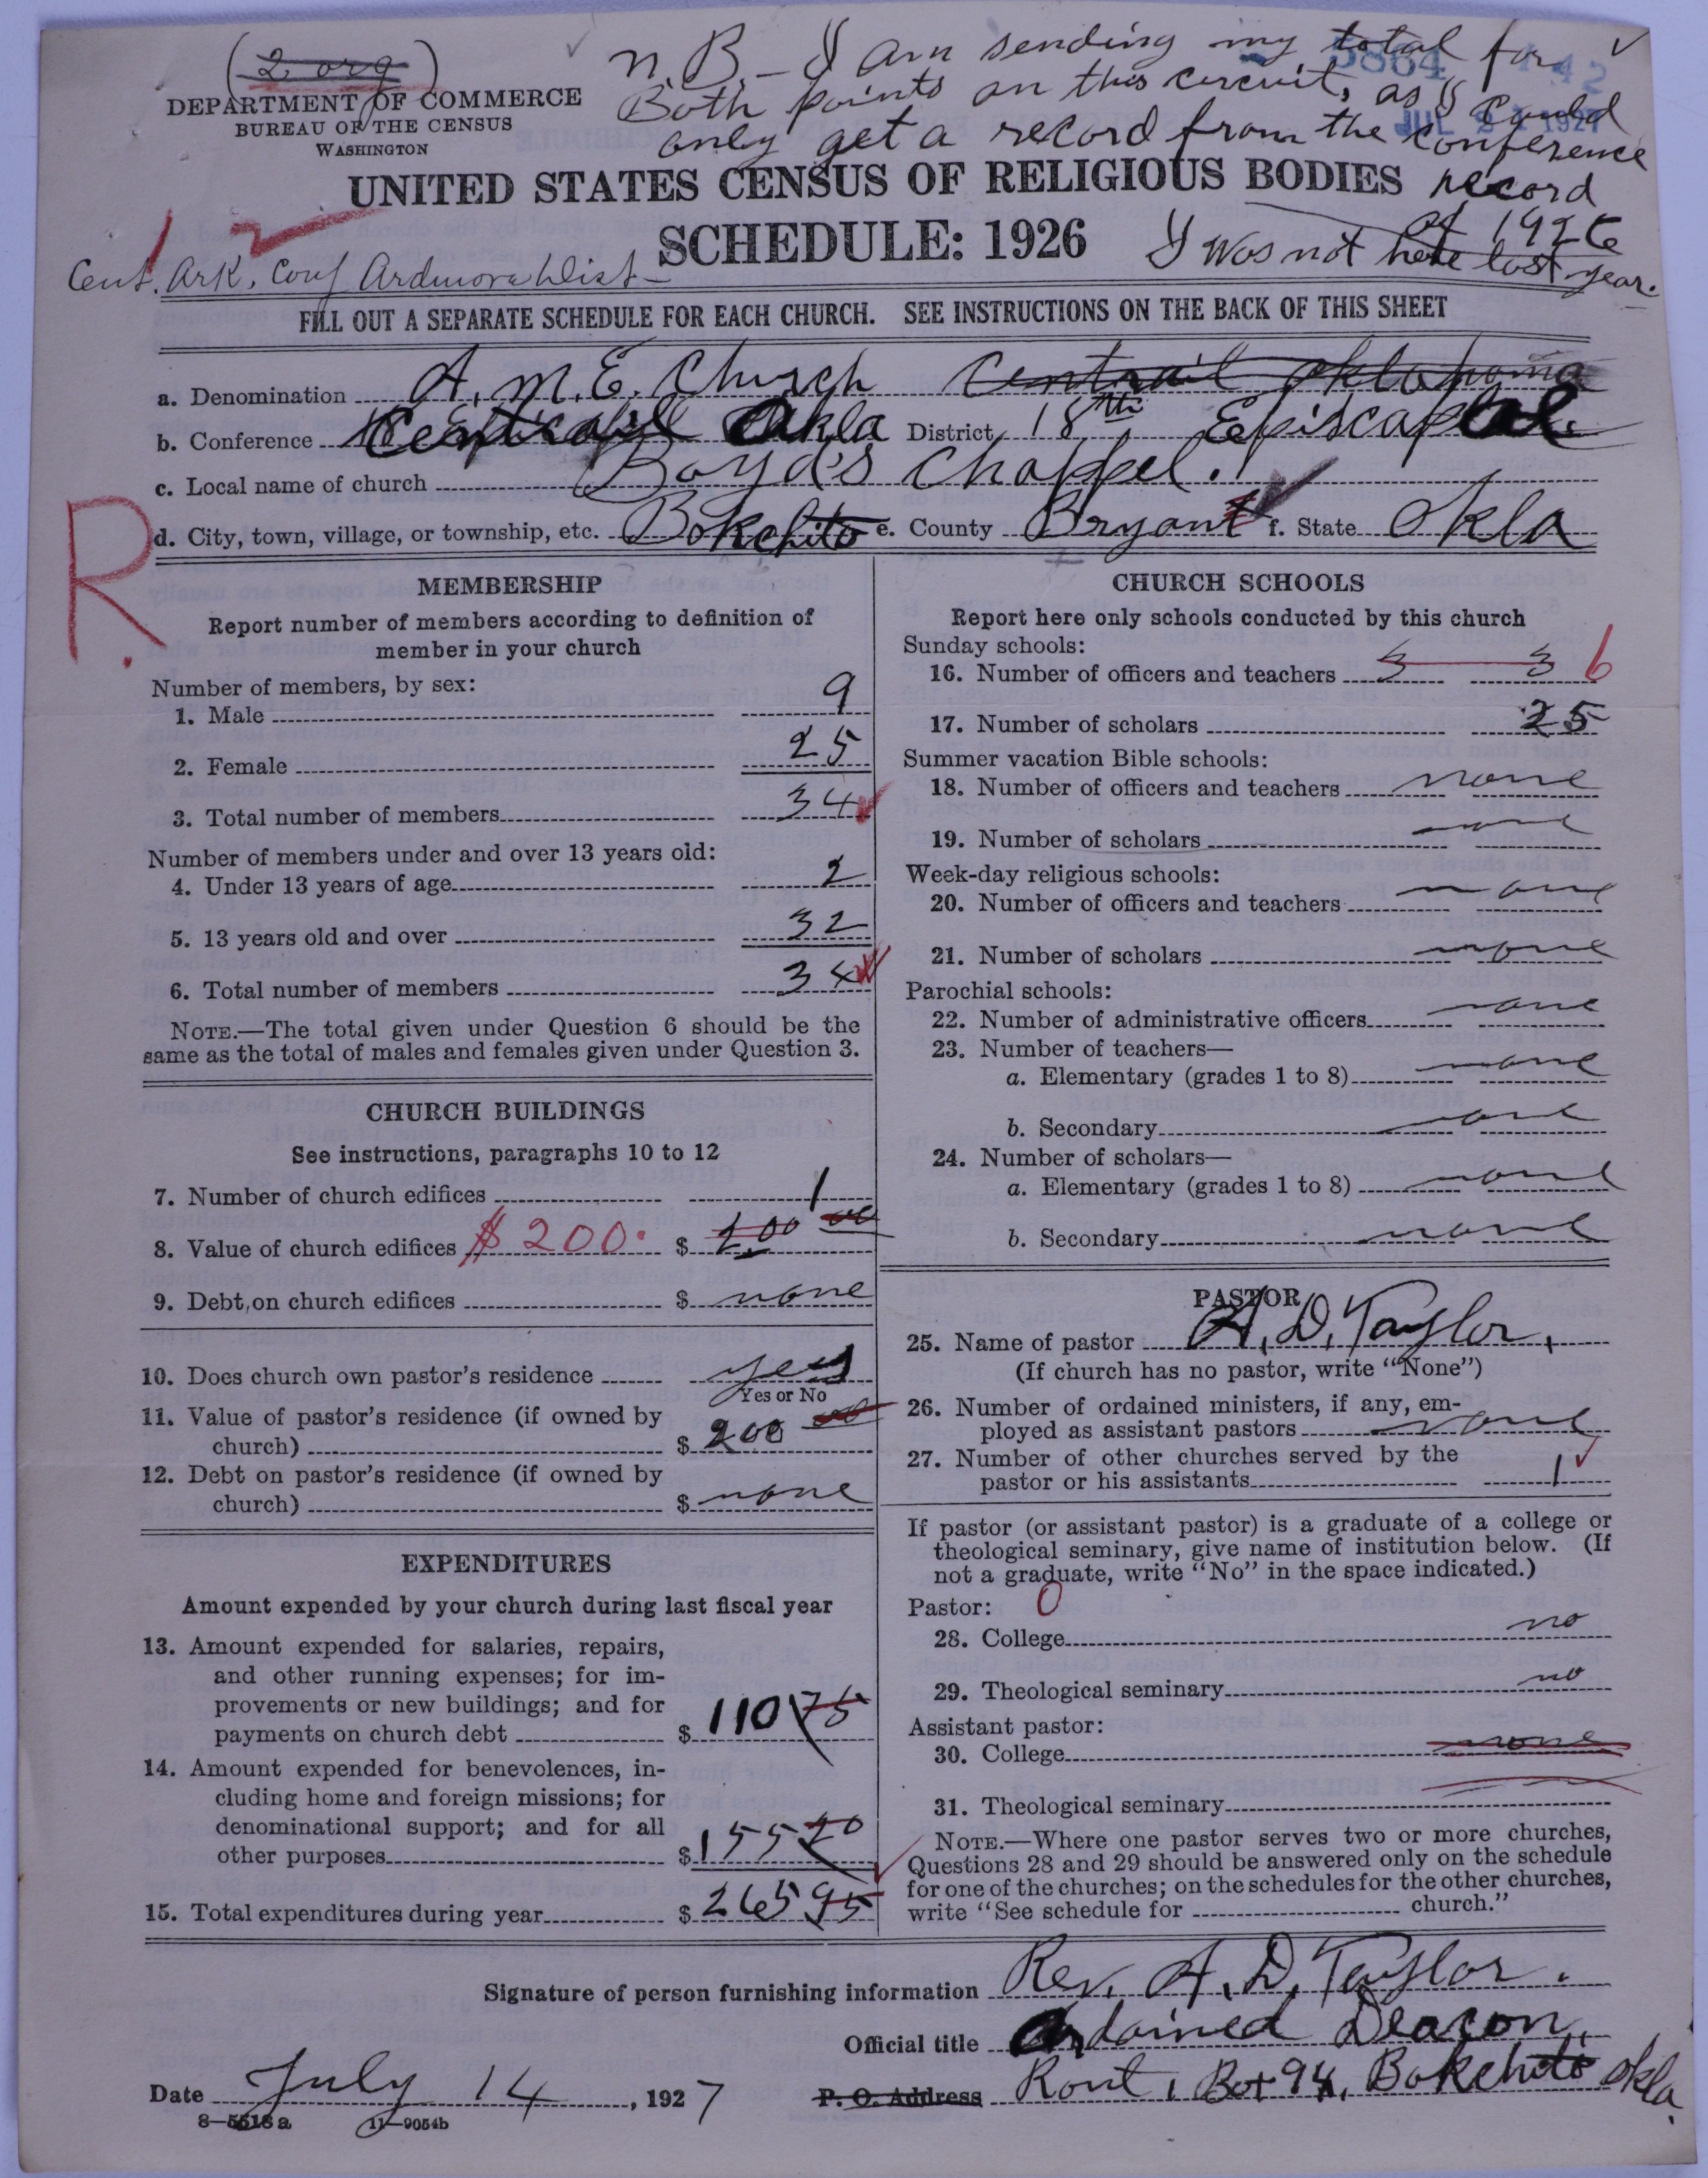 (2 org)
N.B. – I am sending my total for
Both points on this circuit, as I could
only get a record from the Conference
record
of 1926
I was not here last year.
5864
142
JUL 21 1927
DEPARTMENT OF COMMERCE
BUREAU OF THE CENSUS
WASHINGTON
UNITED STATES CENSUS OF RELIGIOUS BODIES
SCHEDULE: 1926
Cent. Ark. Conf Ardmore Dist
FILL OUT A SEPARATE SCHEDULE FOR EACH CHURCH. SEE INSTRUCTIONS ON THE BACK OF THIS SHEET
a. Denomination A. M. E. Church Centrail Oklahoma
b. Conference Centrail Okla District 18th Episcapal.
c. Local name of church Boyd's Chappel.
d. City, town, village, or township, etc. Bokchito e. County Bryant f. State Okla
R.
MEMBERSHIP
Report number of members according to definition of
member in your church
Number of members, by sex:
1. Male 9
2. Female 25
3. Total number of members 34
Number of members under and over 13 years old:
4. Under 13 years of age 2
5. 13 years old and over 32
6. Total number of members 34
NOTE.—The total given under Question 6 should be the
same as the total of males and females given under Question 3.
CHURCH BUILDINGS
See instructions, paragraphs 10 to 12
7. Number of church edifices 1
8. Value of church edifices $200. $ 200 00
9. Debt on church edifices $ none
10. Does church own pastor's residence yes
Yes or No
11. Value of pastor's residence (if owned by
church) $ 200 00
12. Debt on pastor's residence (if owned by
church) $ none
EXPENDITURES
Amount expended by your church during last fiscal year
13. Amount expended for salaries, repairs,
and other running expenses; for im-
provements or new buildings; and for
payments on church debt $ 110 75
14. Amount expended for benevolences, in-
cluding home and foreign missions; for
denominational support; and for all
other purposes $ 155 20
15. Total expenditures during year $ 265 95
CHURCH SCHOOLS
Report here only schools conducted by this church
Sunday schools:
16. Number of officers and teachers 3 3 6
17. Number of scholars 25
Summer vacation Bible schools:
18. Number of officers and teachers none
19. Number of scholars none
Week-day religious schools:
20. Number of officers and teachers none
21. Number of scholars none
Parochial schools:
22. Number of administrative officers none
23. Number of teachers—
a. Elementary (grades 1 to 8) none
b. Secondary none
24. Number of scholars—
a. Elementary (grades 1 to 8) none
b. Secondary none
PASTOR
25. Name of pastor A. D. Taylor.
(If church has no pastor, write "None")
26. Number of ordained ministers, if any, em-
ployed as assistant pastors none
27. Number of other churches served by the
pastor or his assistants 1
If pastor (or assistant pastor) is a graduate of a college or
theological seminary, give name of institution below. (If
not a graduate, write "No" in the space indicated.)
Pastor: 0
28. College no
29. Theological seminary no
Assistant pastor:
30. College none
31. Theological seminary
NOTE.—Where one pastor serves two or more churches,
Questions 28 and 29 should be answered only on the schedule
for one of the churches; on the schedules for the other churches,
write "See schedule for church."
Signature of person furnishing information Rev. A. D. Taylor.
Official title Ordained Deacon
Date July 14, 1927 P. O. Address Rout 1 Box 94, Bokchito Okla.
8—5518a 11—9054b